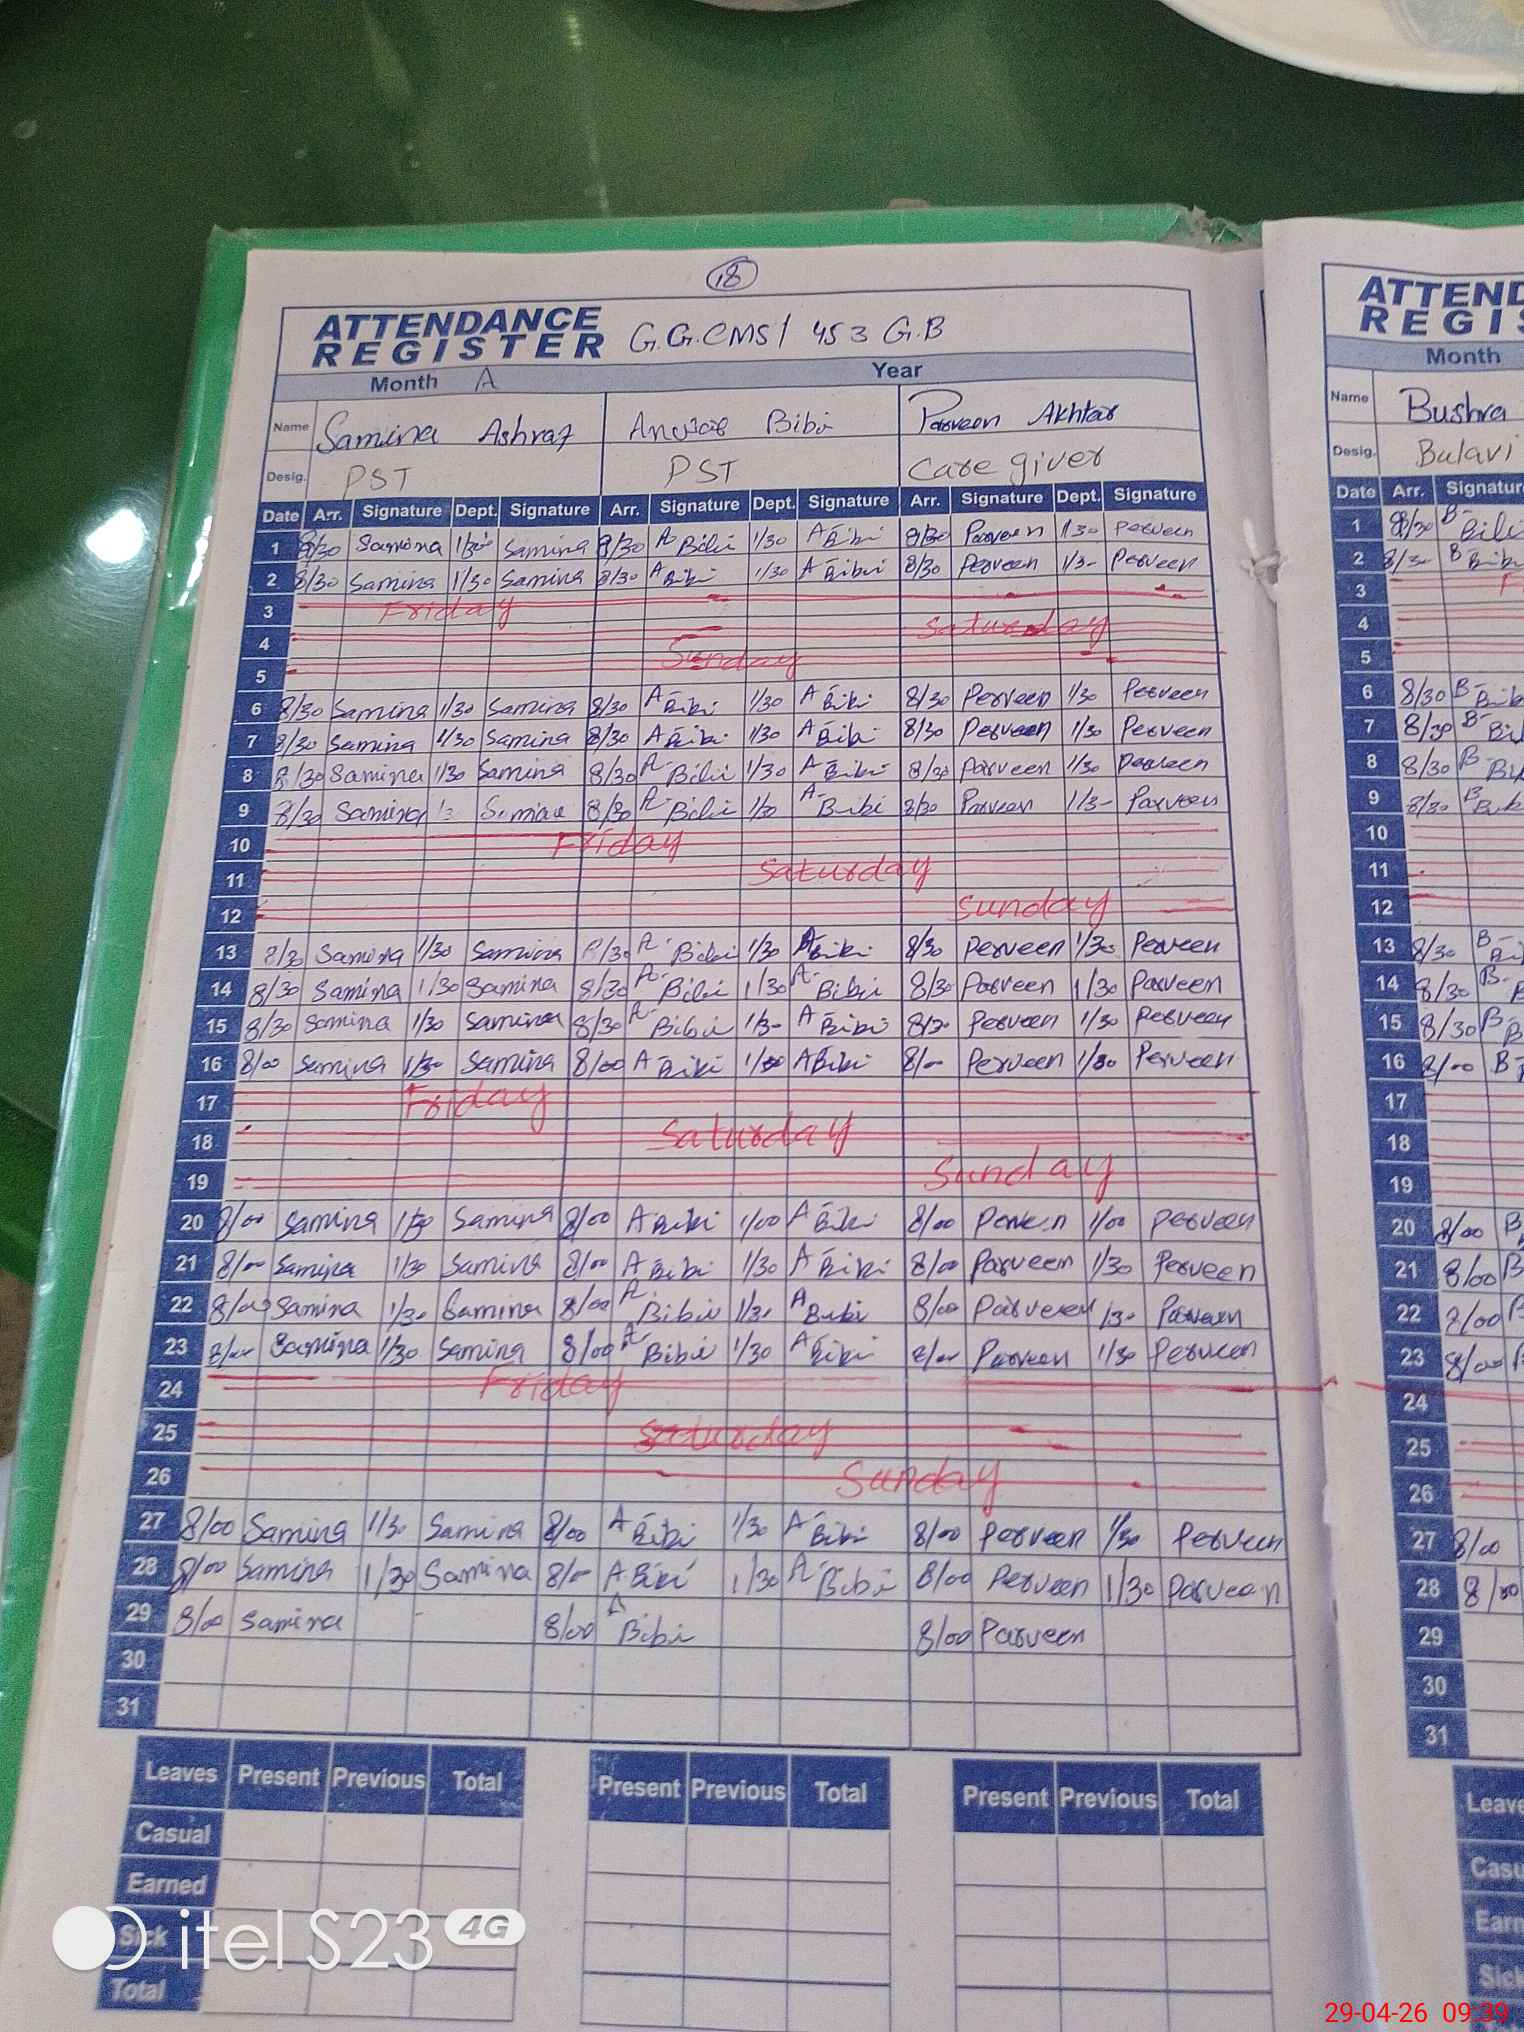 18
ATTENDANCE REGISTER G.G.CMS/ 453 G.B
Month A Year
Name Samina Ashraf Bibi Parveen Akhtar
Desig. PST PST Care giver
Date Arr. Signature Dept. Signature Arr. Signature Dept. Signature Arr. Signature Dept. Signature
1 8/30 Samina 1/30 Samina 8/30 A Bibi 1/30 A Bibi 8/30 Parveen 1/30 Perveen
2 8/30 Samina 1/30 Samina 8/30 A Bibi 1/30 A Bibi 8/30 Perveen 1/3- Perveen
3 Friday
4 Saturday
5 Sunday
6 8/30 Samina 1/30 Samina 8/30 A Bibi 1/30 A Bibi 8/30 Perveen 1/30 Perveen
7 8/30 Samina 1/30 Samina 8/30 A Bibi 1/30 A Bibi 8/30 Perveen 1/30 Perveen
8 8/30 Samina 1/30 Samina 8/30 A Bibi 1/30 A Bibi 8/30 Parveen 1/30 Parveen
9 8/30 Samina 1/3 Samina 8/30 A Bibi 1/30 A Bibi 8/30 Parveen 1/3- Parveen
10 Friday
11 Saturday
12 Sunday
13 8/30 Samina 1/30 Samina 8/30 A Bibi 1/30 A Bibi 8/30 Perveen 1/30 Perveen
14 8/30 Samina 1/30 Samina 8/30 A Bibi 1/30 A Bibi 8/30 Parveen 1/30 Parveen
15 8/30 Samina 1/30 Samina 8/30 A Bibi 1/3- A Bibi 8/30 Perveen 1/30 Perveen
16 8/00 Samina 1/30 Samina 8/00 A Bibi A Bibi 8/00 Perveen 1/30 Perveen
17 Friday
18 Saturday
19 Sunday
20 8/00 Samina 1/30 Samina 8/00 A Bibi 1/00 A Bibi 8/00 Perveen 1/00 Perveen
21 8/00 Samina 1/30 Samina 8/00 A Bibi 1/30 A Bibi 8/00 Parveen 1/30 Perveen
22 8/00 Samina 1/30 Samina 8/00 A Bibi 1/30 A Bibi 8/00 Parveen 1/30 Parveen
23 8/00 Samina 1/30 Samina 8/00 A Bibi 1/30 A Bibi 8/00 Parveen 1/30 Perveen
24 Friday
25 Saturday
26 Sunday
27 8/00 Samina 1/30 Samina 8/00 A Bibi 1/30 A Bibi 8/00 Perveen 1/30 Perveen
28 8/00 Samina 1/30 Samina 8/00 A Bibi 1/30 A Bibi 8/00 Perveen 1/30 Parveen
29 8/00 Samina 8/00 A Bibi 8/00 Parveen
30
31
Leaves Present Previous Total Present Previous Total Present Previous Total
Casual
Earned
Sick
Total
ATTEND
REGIS
Month
Name Bushra
Desig. Bulavi
Date Arr. Signatur
1 8/30 B
2 8/30 B Bibi
3
4
5
6 8/30 B
7 8/30 B
8 8/30 B
9 8/30 B
10
11
12
13 8/30 B
14 8/30 B
15 8/30 B
16 8/00 B
17
18
19
20 8/00 B
21 8/00 B
22 8/00
23 8/00
24
25
26
27 8/00
28 8/00
29
30
31
Leave
Casu
Earn
Sick
itel S23 4G
29-04-26 09:39